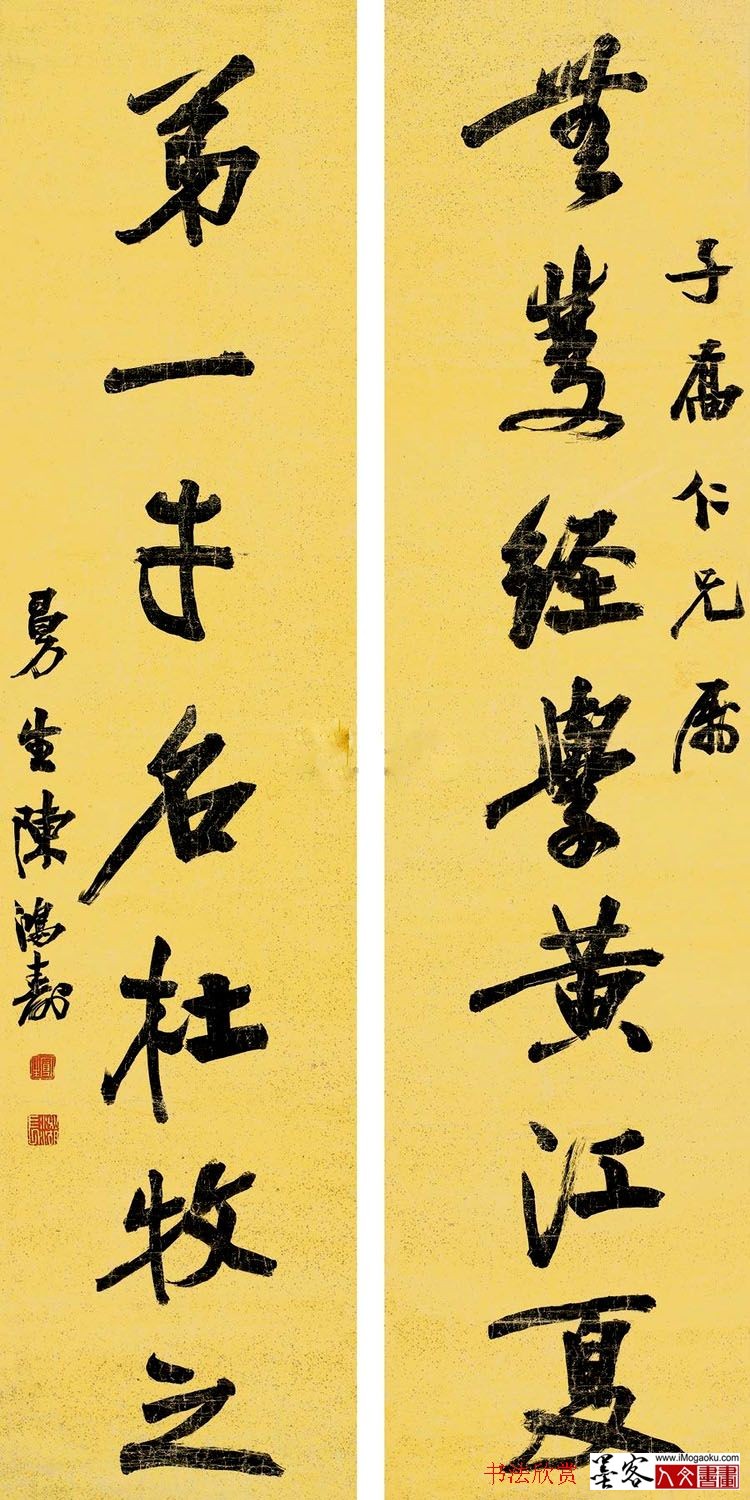 子
仁兄屬
無雙經學黃江夏
弟一才名杜牧之
曼生陳鴻壽
书法欣赏
墨客
www.iMogaoku.com
人文書畫